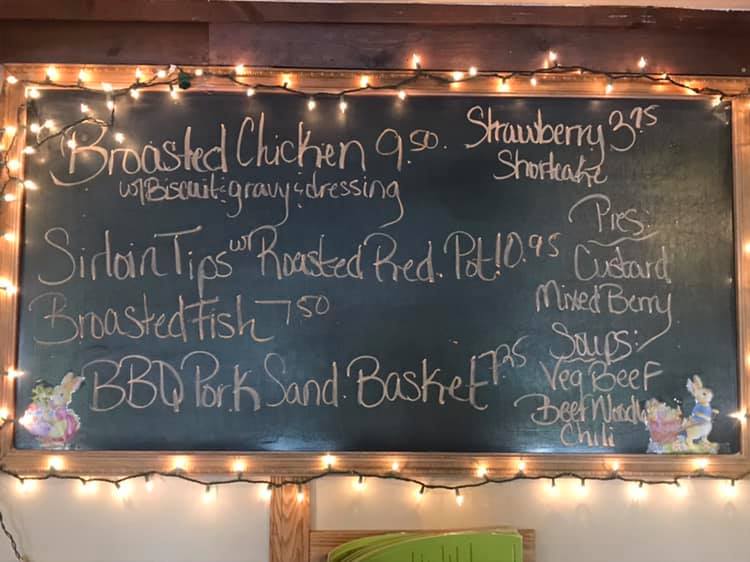 Broasted Chicken 9.50
w/ Biscuit & gravy & dressing
Sirloin Tips w/ Roasted Red. Pot 10.95
Broasted Fish 7.50
BBQ Pork Sand. Basket 7.25
Strawberry 3.95
Shortcake
Pies:
Custard
Mixed Berry
Soups:
Veg Beef
Beef Noodle
Chili